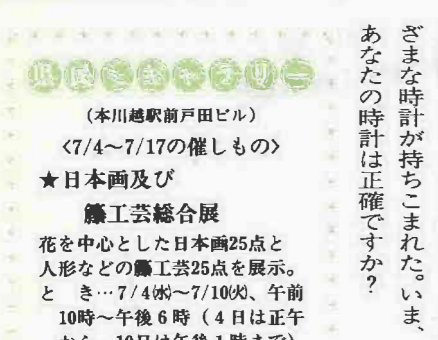 ざまな時計が持ちこまれた。いま、
あなたの時計は正確ですか？
県民ミニギャラリー
（本川越駅前戸田ビル）
〈7/4～7/17の催しもの〉
★日本画及び
籐工芸総合展
花を中心とした日本画25点と
人形などの籐工芸25点を展示。
と き…7/4㈬～7/10㈫、午前
10時～午後6時（4日は正午
から、10日は午後1時まで）